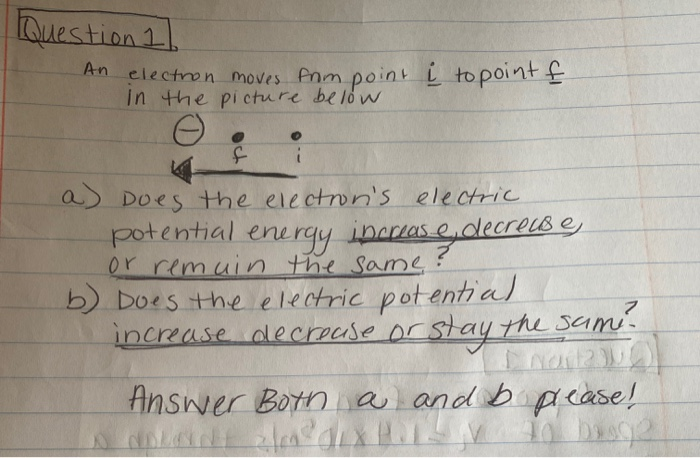 Question 1
An electron moves from point i to point f
in the picture below
f i
a) Does the electron's electric
potential energy increase, decrease,
or remain the same?
b) Does the electric potential
increase decrease or stay the same?
Answer Both a and b please!